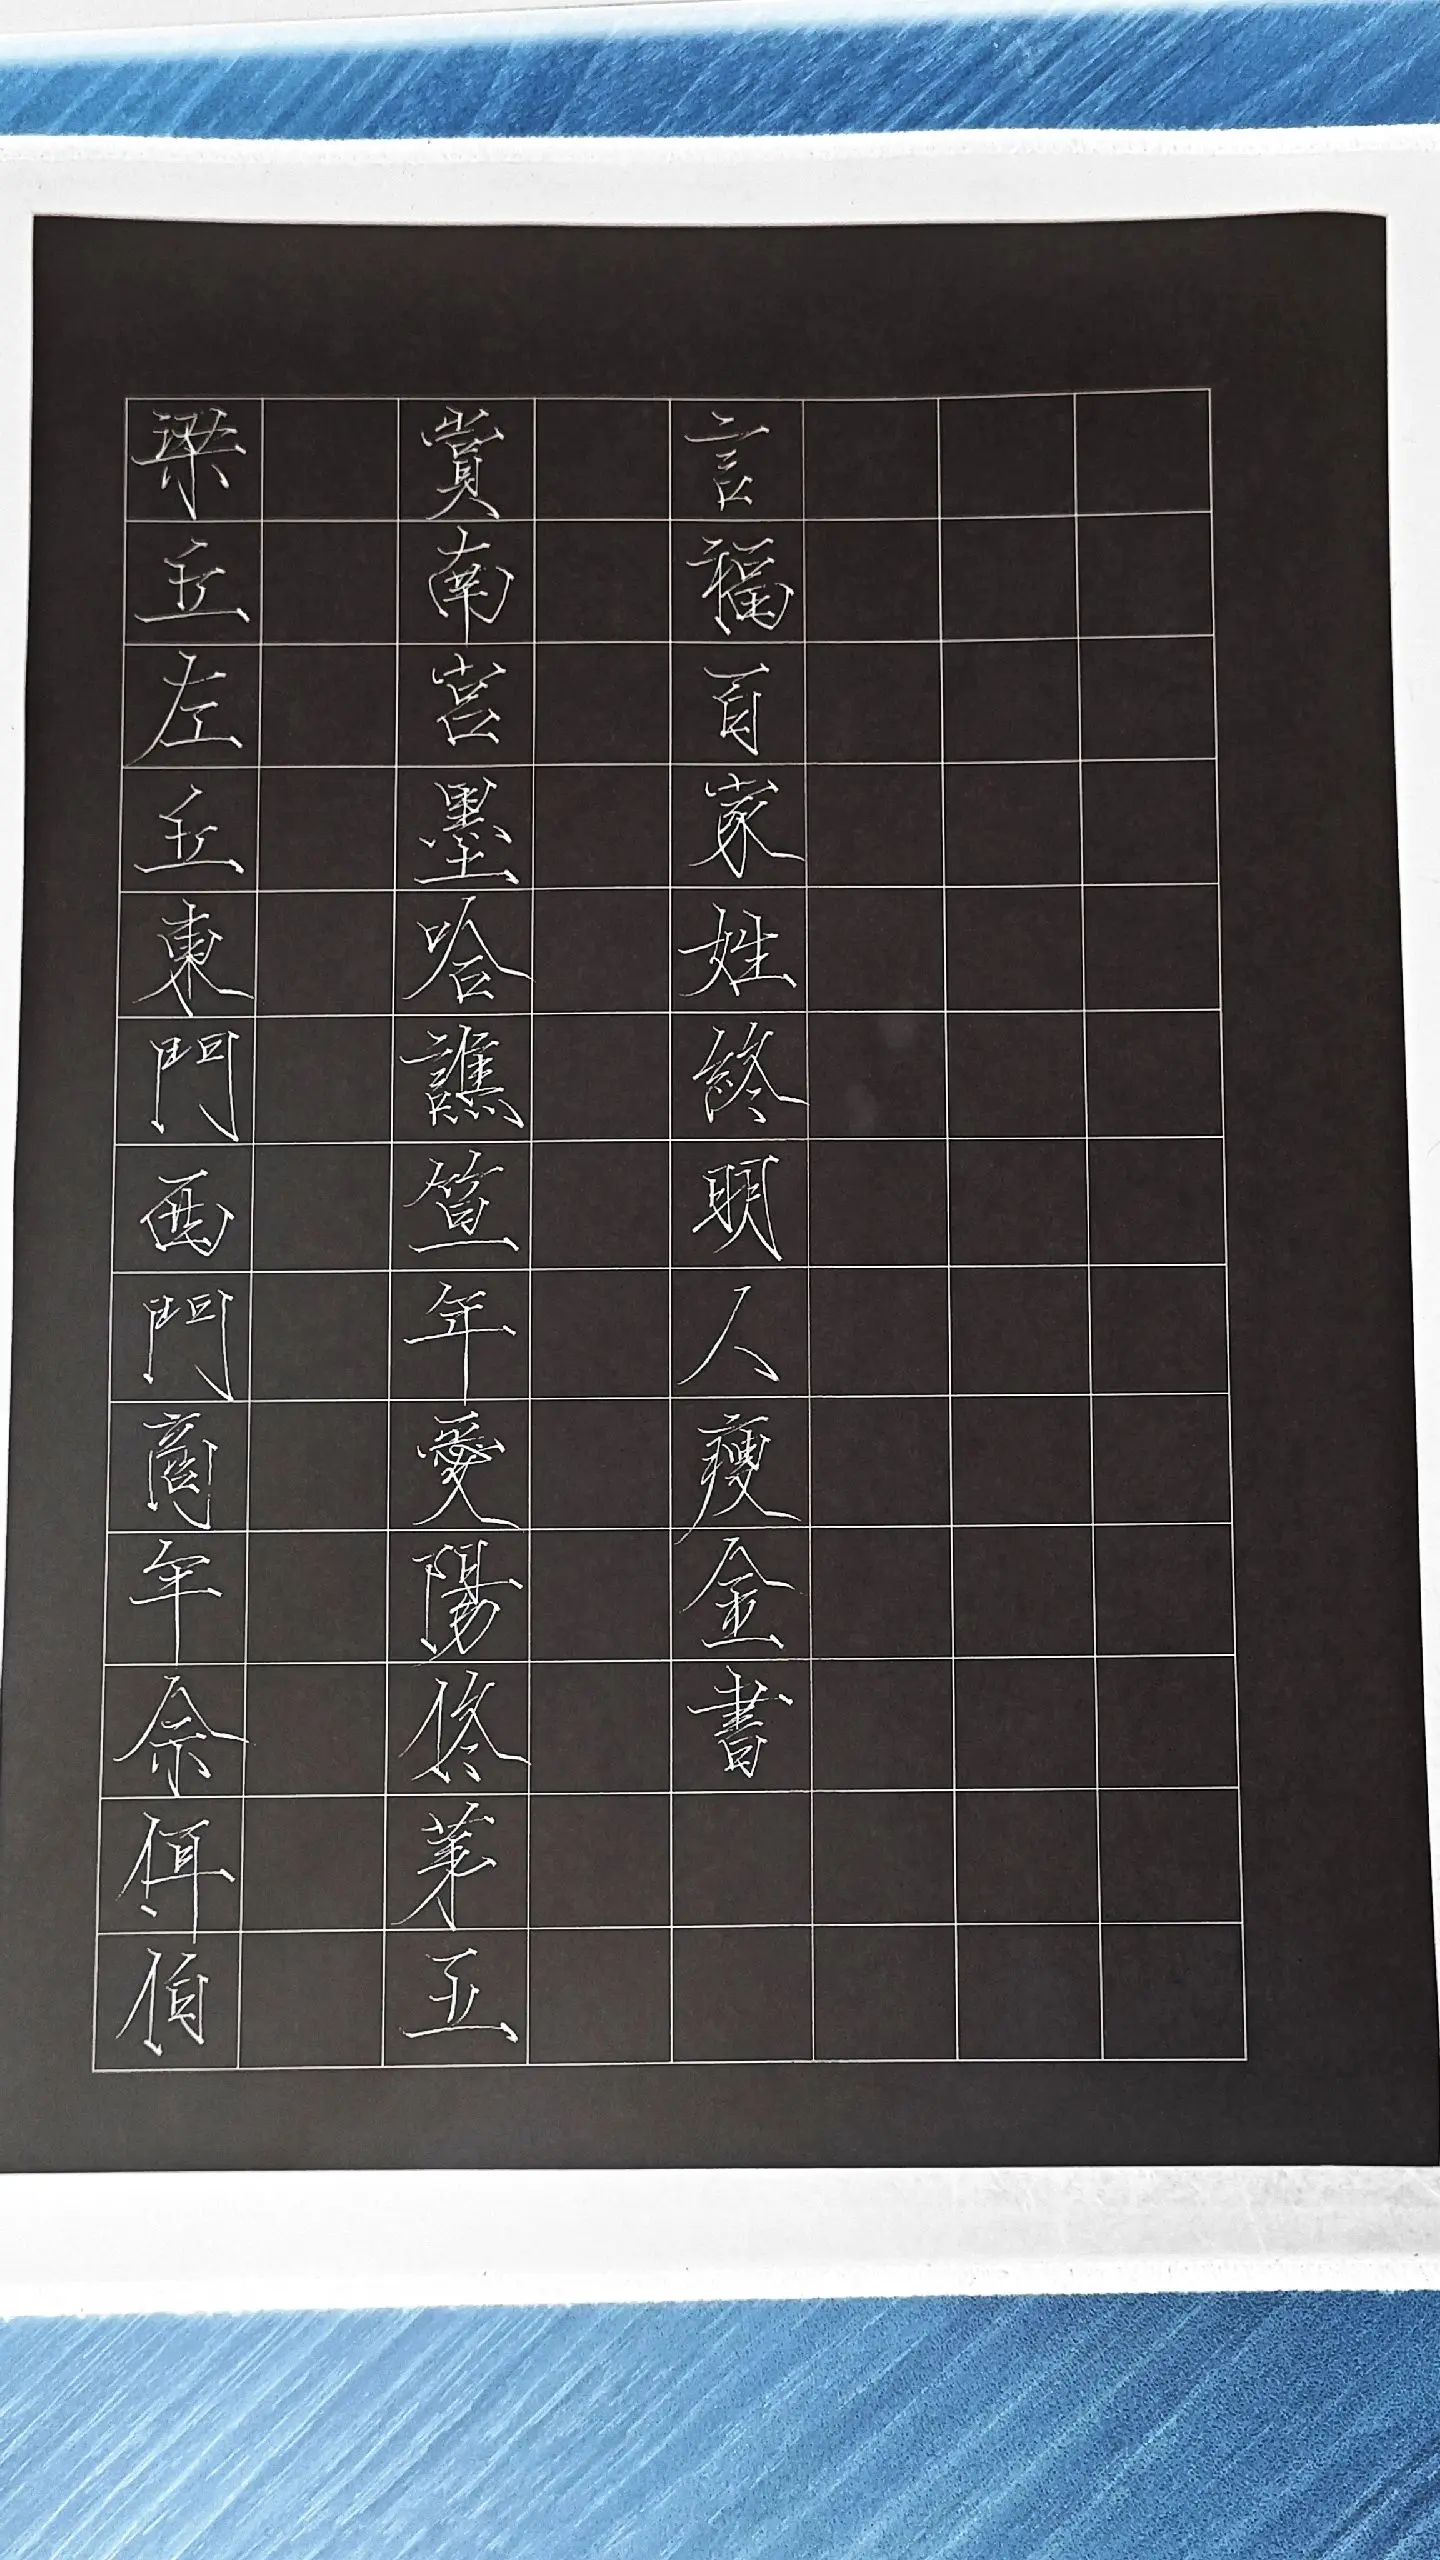 梁丘左丘東門西門商牟佘佴伯
賞南宮墨哈譙笪年愛陽佟第五
言福百家姓終明人瘦金書